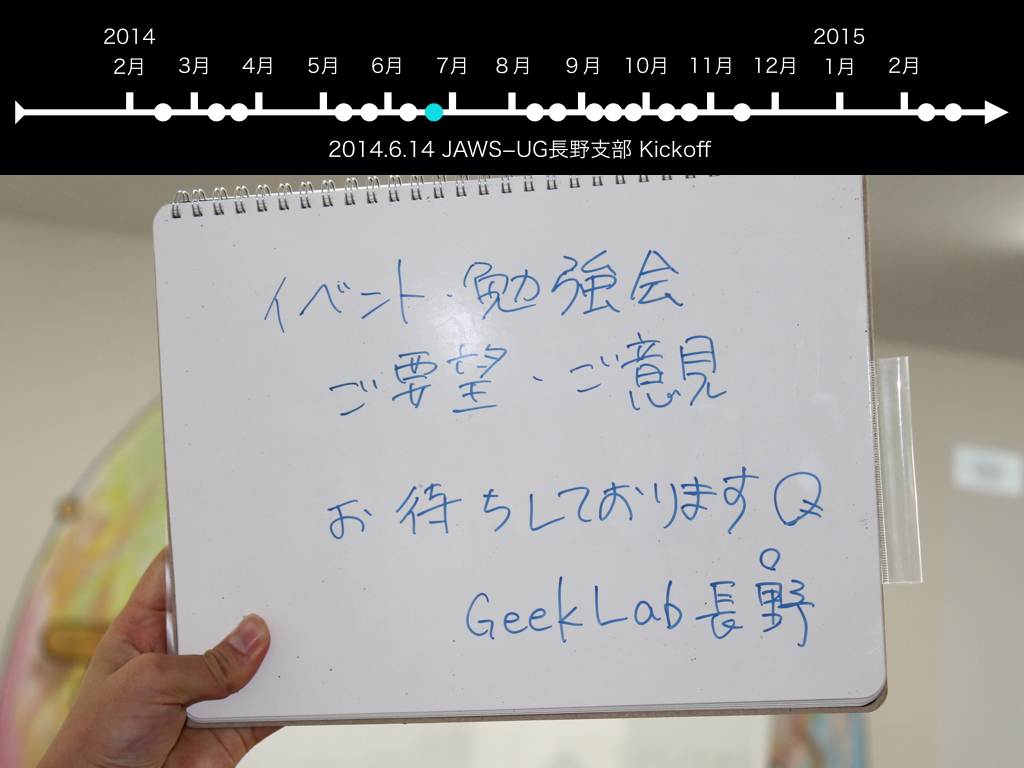 2014 2015
2月 3月 4月 5月 6月 7月 8月 9月 10月 11月 12月 1月 2月
2014.6.14 JAWS-UG長野支部 Kickoff
イベント・勉強会
ご要望・ご意見
お待ちしております
GeekLab長野